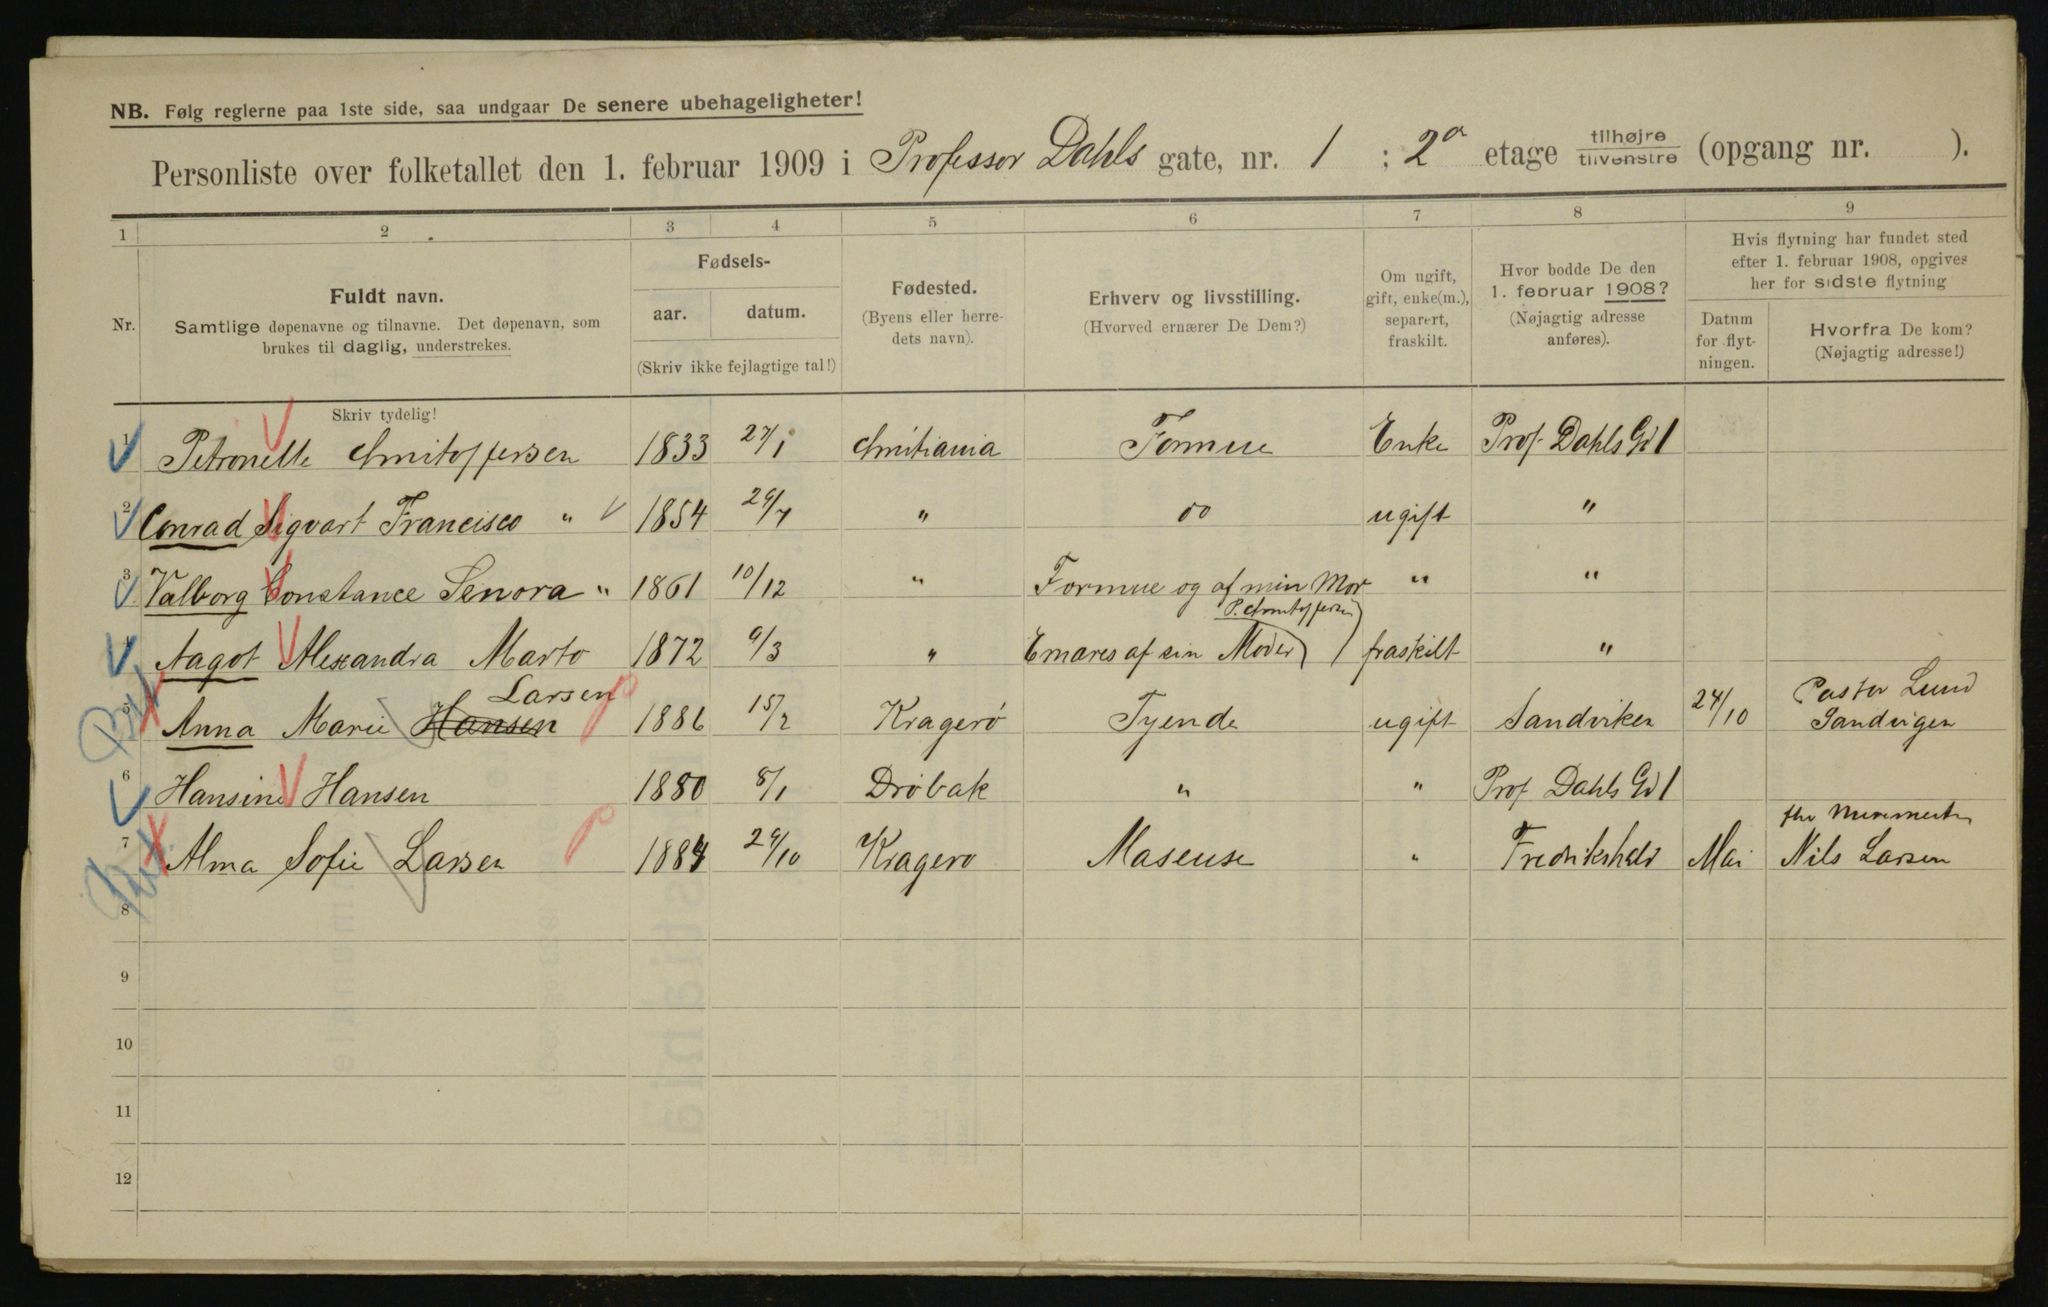 NB. Følg reglerne paa 1ste side, saa undgaar De senere ubehageligheter!
Personliste over folketallet den 1. februar 1909 i Professor Dahls gate, nr. 1 ; 2a etage tilhøjre tilvenstre (opgang nr. ).
1 2 3 4 5 6 7 8 9
Nr.
Fuldt navn.
Samtlige døpenavne og tilnavne. Det døpenavn, som
brukes til daglig, understrekes.
Skriv tydelig!
Fødsels-
aar. datum.
(Skriv ikke fejlagtige tal!)
Fødested.
(Byens eller herre-
dets navn).
Erhverv og livsstilling.
(Hvorved ernærer De Dem?)
Om ugift,
gift, enke(m.),
separert,
fraskilt.
Hvor bodde De den
1. februar 1908?
(Nøjagtig adresse
anføres).
Hvis flytning har fundet sted
efter 1. februar 1908, opgives
her for sidste flytning
Datum
for flyt-
ningen.
Hvorfra De kom?
(Nøjagtig adresse!)
1 Petronelle Christoffersen 1833 27/1 Christiania Formue Enke Prof. Dahls Gd 1
2 Conrad Sigvart Francisco " 1854 29/7 " do ugift "
3 Valborg Constance Senora " 1861 10/12 " Formue og af min Mor " "
P. Christoffersen
4 Aagot Alexandra Marto 1872 9/3 " Ernæres af sin Moder fraskilt "
5 Anna Marie Hansen Larsen 1886 15/2 Kragerø Tyende ugift Sandviken 24/10 Pastor Lund
Sandvigen
6 Hansine Hansen 1880 8/1 Drøbak " " Prof Dahls Gd 1
7 Alma Sofie Larsen 1884 29/10 Kragerø Maseuse " Fredrikshald Mai
Nils Larsen
8
9
10
11
12